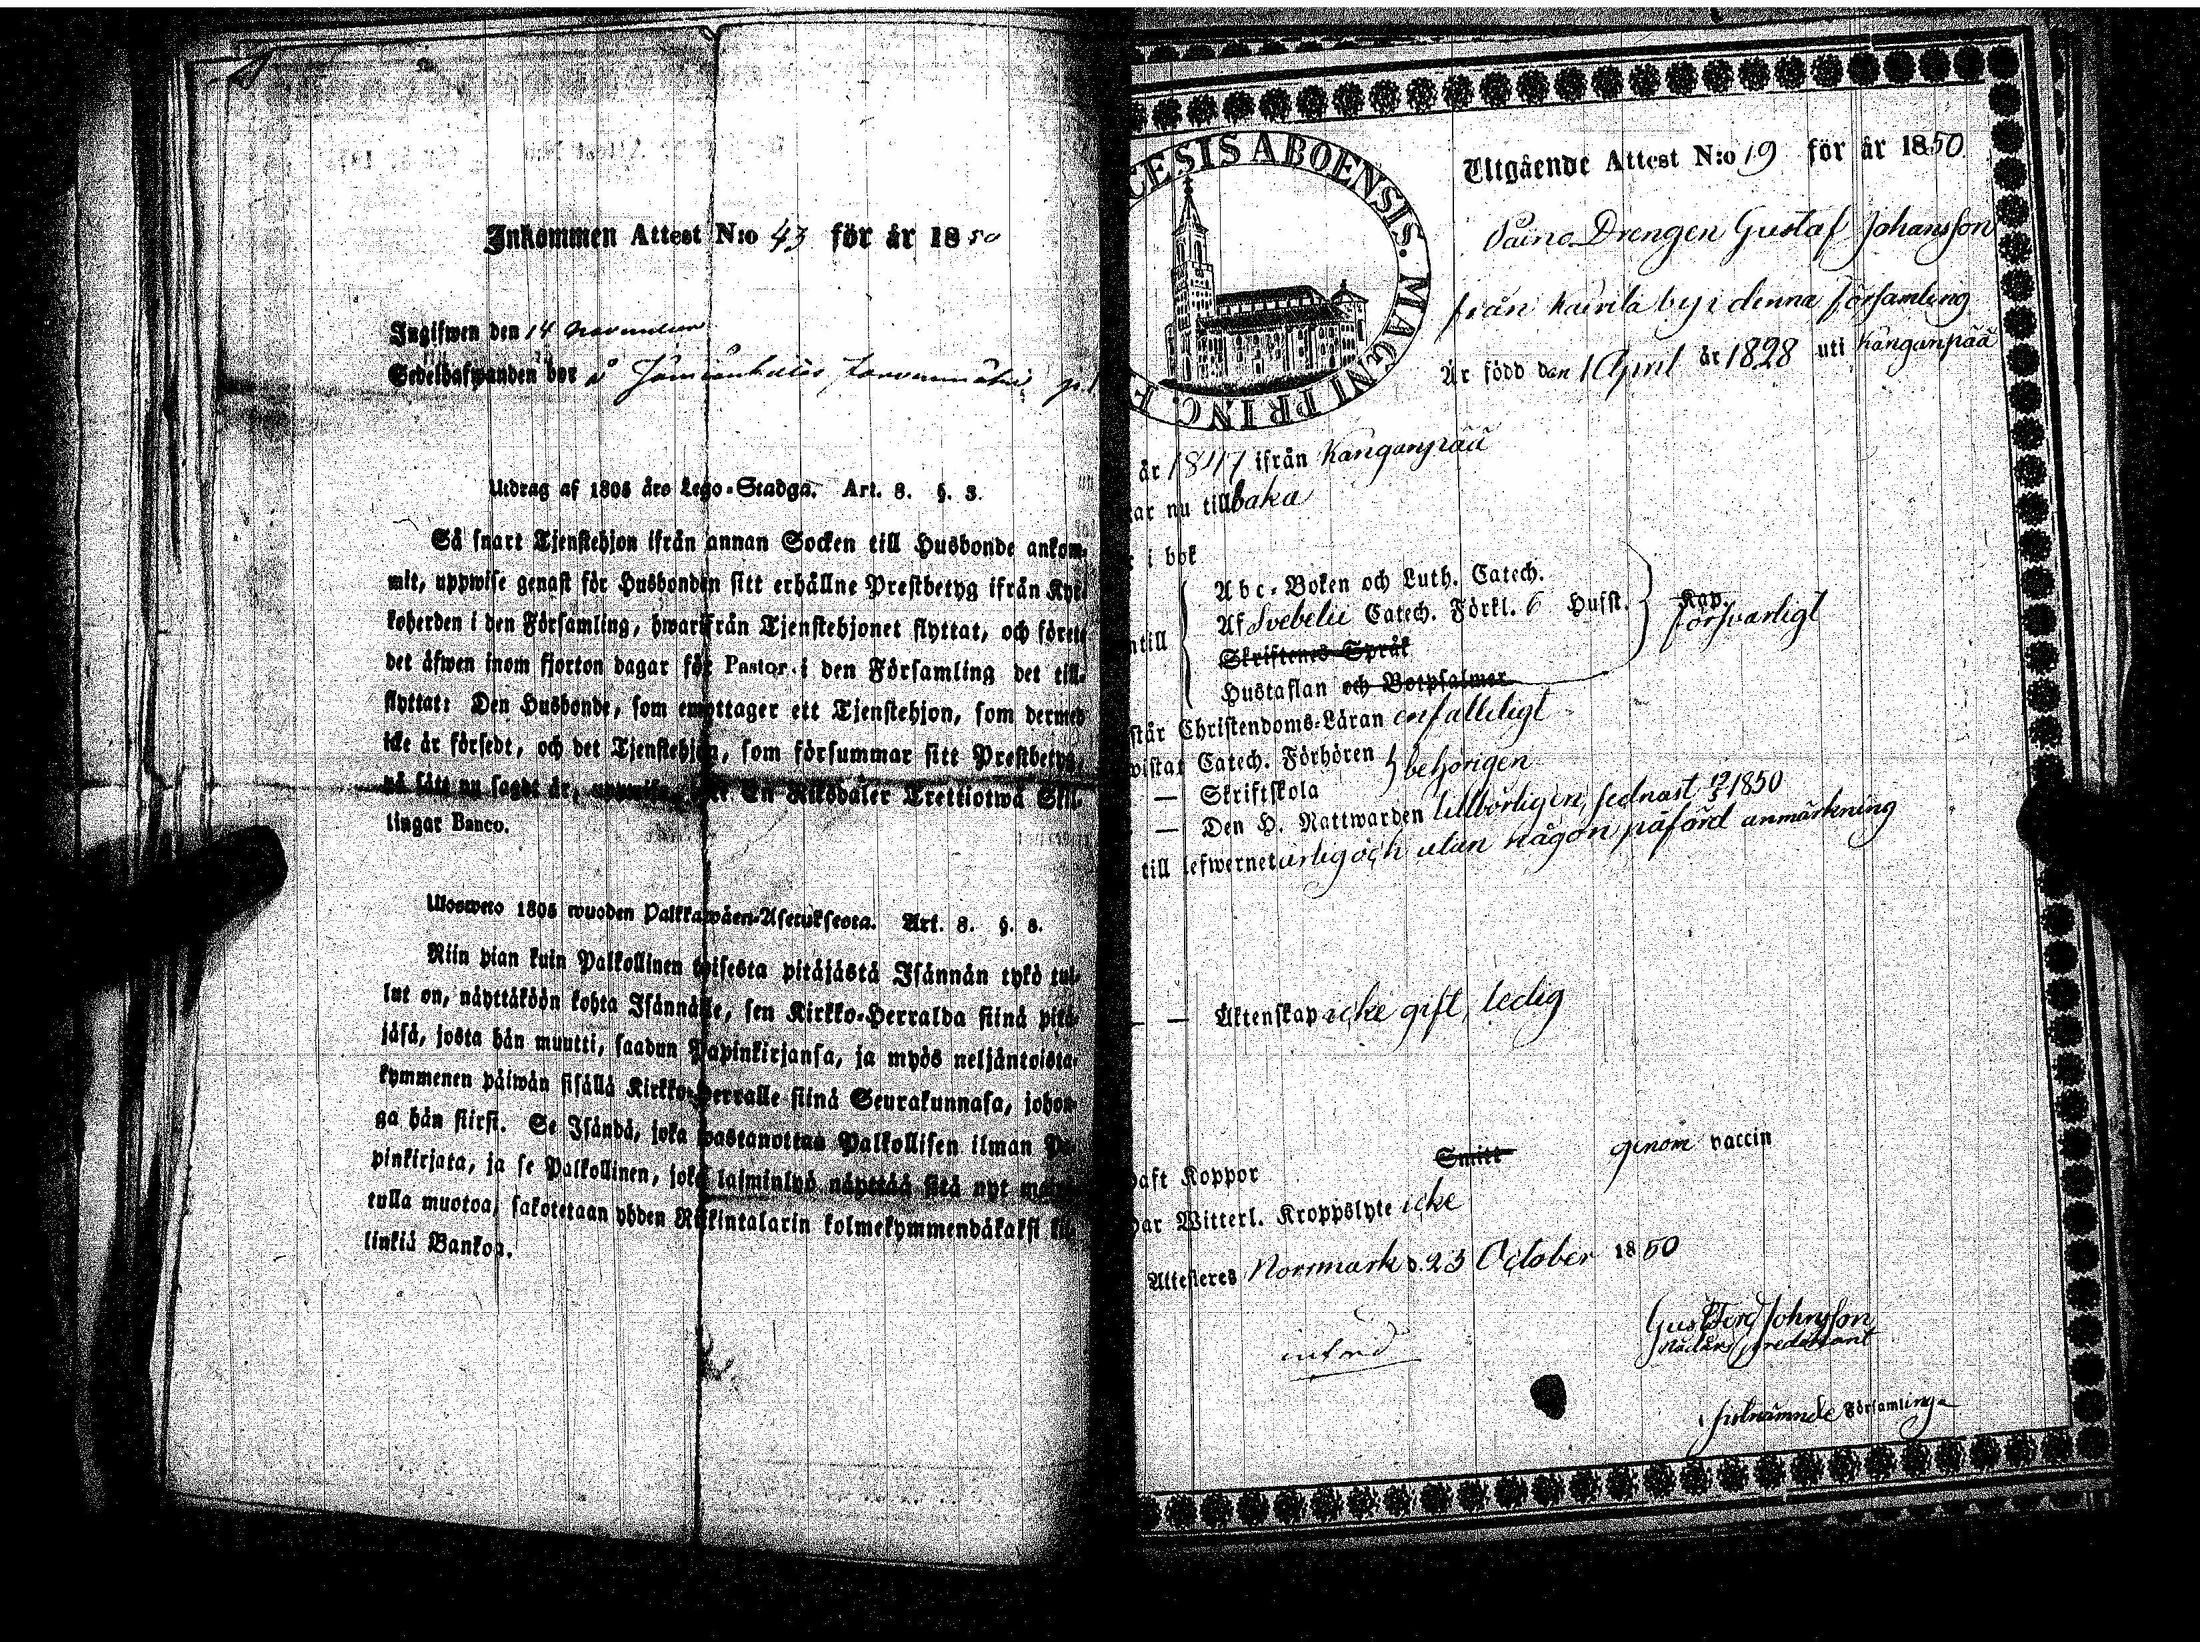 Inkommen Attest N:o 43 för år 1850
Ingifwen den 14 November
Sedelhafwanden bor å
Utdrag af 1805 års Lego-Stadga. Art. 8. §. 3.
Så snart Tjenstehjon ifrån annan Socken till Husbonde ankom-
mit, uppwise genast för Husbonden sitt erhållne Prestbetyg ifrån Kyr-
koherden i den Församling, hwarifrån Tjenstehjonet flyttat, och förete
det äfwen inom fjorton dagar för Pastor i den Församling det till-
flyttat: Den Husbonde, som emottager ett Tjenstehjon, som dermed
icke är försedt, och det Tjenstehjon, som försummar sitt Prestbetyg,
på sätt nu sagdt är, uppwisa, En Riksdaler Trettiotwå Skil-
lingar Banco.
Ulosweto 1805 wuoden Palkkawäen-Asetuksesta. Art. 8. §. 3.
Niin pian kuin Palkollinen toisesta pitäjästä Isännän tykö tul-
lut on, näyttäköön kohta Isännälle, sen Kirkko-Herralda siinä pitä-
jäsä, josta hän muutti, saadun Papinkirjansa, ja myös neljäntoista-
kymmenen päiwän sisällä Kirkko-Herralle siinä Seurakunnasa, johon-
ga hän siirsi. Se Isändä, joka wastanottaa Palkollisen ilman Pa-
pinkirjata, ja se Palkollinen, joka laiminlyö näyttää sitä nyt
tulla muotoa, sakotetaan yhden Riikintalarin kolmekymmendäkaksi kil-
linkiä Bankoa.
CESIS ABOENSIS. MAGNI PRINC. F
Utgående Attest N:o 19 för år 1850
Drengen Gustaf Johansson
från Kairila by i denna församling
Är född den 1 April år 1828 uti Kanganpää
år 1847 ifrån Kanganpää
ar nu tillbaka
i bok
ntill
Abc-Boken och Luth. Catech.
Af Svebelii Catech. Förkl. 6 Husst.
Skriftenes Språk
Hustaflan och Botpsalmer
Kap.
försvarligt
står Christendoms-Läran enfalleligt
wistat Catech. Förhören
— Skriftskola
behörigen
— Den H. Nattwarden tillbörligen, sednast 12/5 1850
till lefwernet ärlig och utan någon påförd anmärkning
— — Äktenskap icke gift, ledig
haft Koppor Smitt genom vaccin
har Witterl. Kroppslyte icke
Attesteres Norrmark d. 23 October 1850
Gust Ferd Johnsson
predikant
infrid
i förenämnde Församling